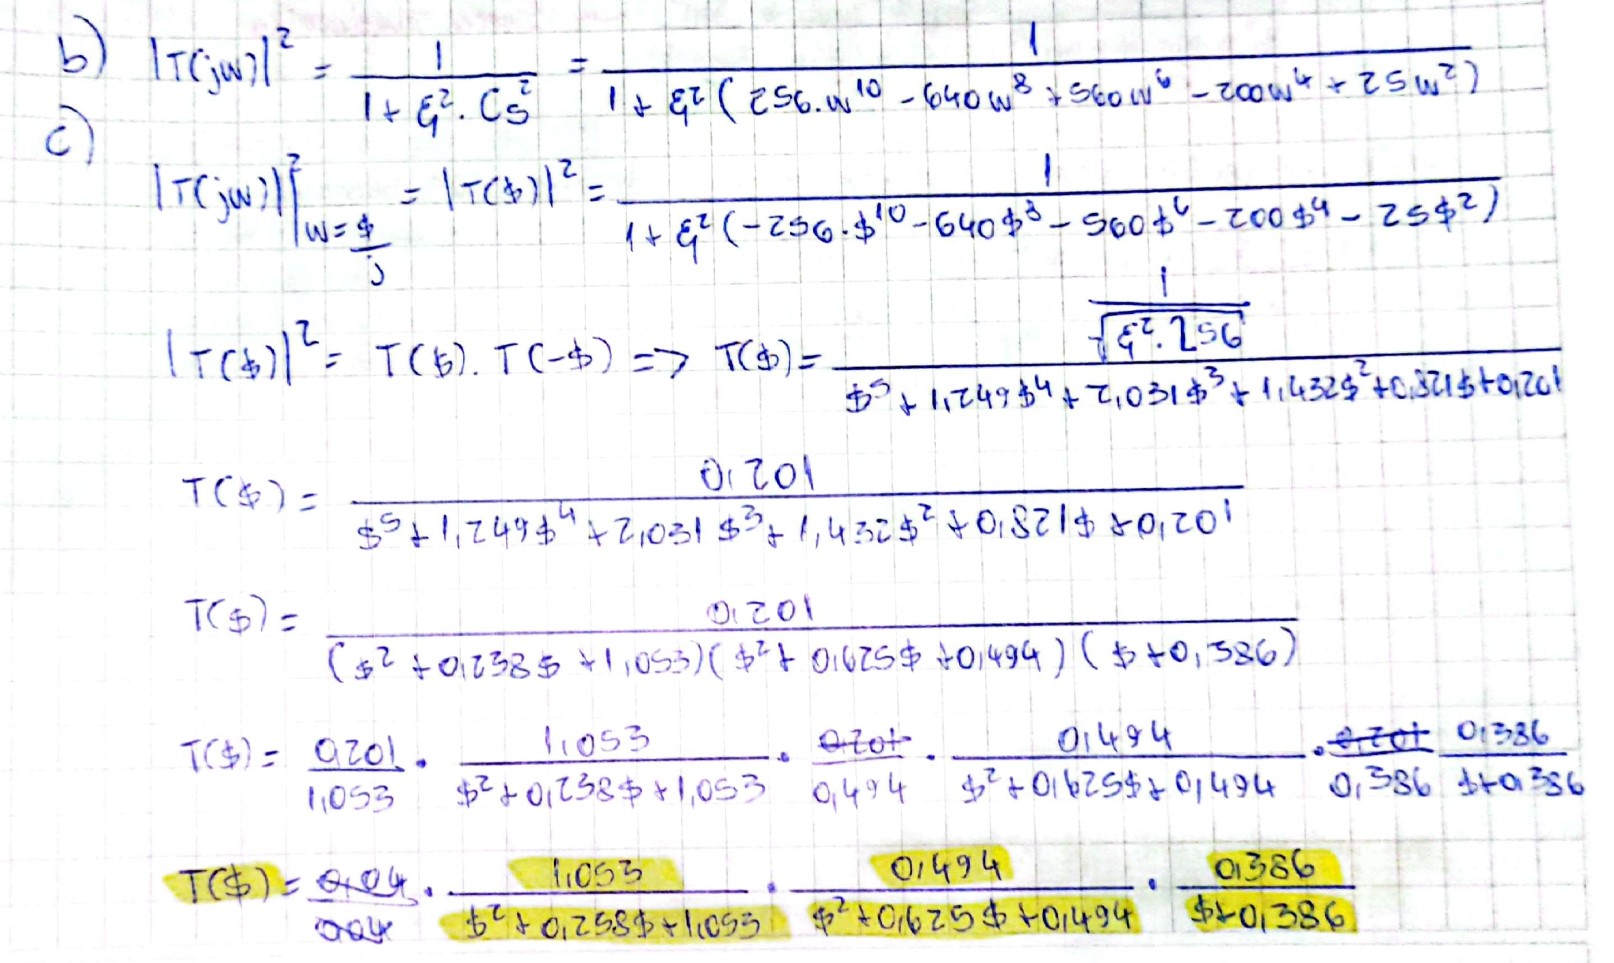 b) |T(jω)|² = 1 / (1 + ξ² · C5²) = 1 / (1 + ξ² (256·ω¹⁰ - 640ω⁸ + 560ω⁶ - 200ω⁴ + 25ω²))
c) |T(jω)|²|ω=$/j = |T($)|² = 1 / (1 + ξ² (-256·$¹⁰ - 640$⁸ - 560$⁶ - 200$⁴ - 25$²))
|T($)|² = T($) · T(-$) => T($) = (1 / √(ξ²·256)) / ($⁵ + 1,249$⁴ + 2,031$³ + 1,432$² + 0,821$ + 0,201)
T($) = 0,201 / ($⁵ + 1,249$⁴ + 2,031$³ + 1,432$² + 0,821$ + 0,201)
T($) = 0,201 / (($² + 0,238$ + 1,053)($² + 0,625$ + 0,494)($ + 0,386))
T($) = 0,201 / 1,053 · 1,053 / ($² + 0,238$ + 1,053) · 0,201 / 0,494 · 0,494 / ($² + 0,625$ + 0,494) · 0,201 / 0,386 0,386 / ($ + 0,386)
T($) = 0,04 / 0,04 · 1,053 / ($² + 0,238$ + 1,053) · 0,494 / ($² + 0,625$ + 0,494) · 0,386 / ($ + 0,386)